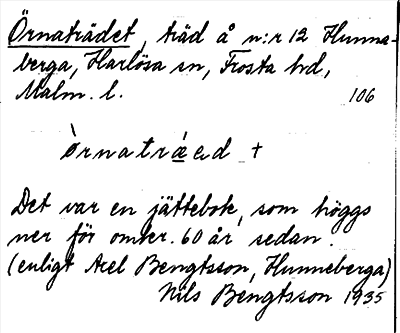 Örnaträdet, träd å n:r 12 Hunne-
berga, Harlösa sn, Frosta hd,
Malm. l. 106
ò̀rnatrǽed +
Det var en jättebok, som höggs
ner för omkr. 60 år sedan.
(enligt Axel Bengtsson, Hunneberga)
Nils Bengtsson 1935